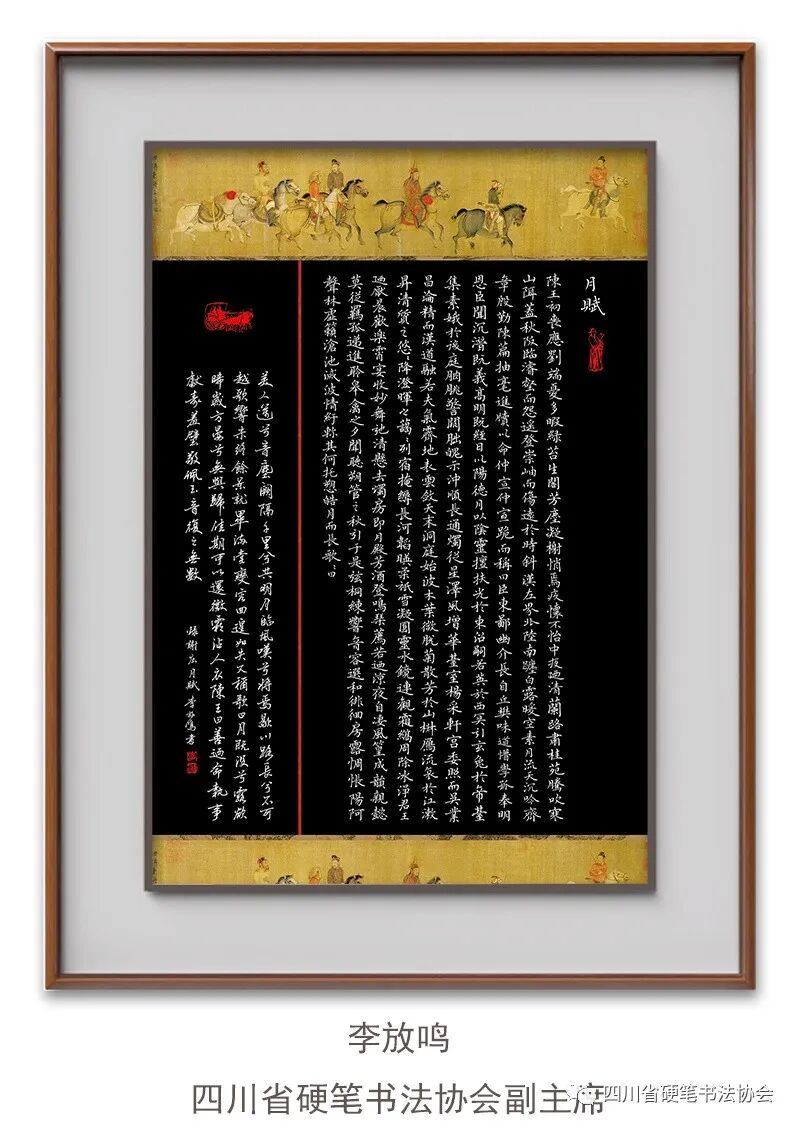 月賦
陳王初喪應劉端憂多暇綠苔生閣芳塵凝榭悄焉疚懷不怡中夜迺清蘭路肅桂苑騰吹寒
山弭蓋秋阪臨濬壑而怨遙登崇岫而傷遠於時斜漢左界北陸南躔白露曖空素月流天沉吟齊
章殷勤陳篇抽毫進牘以命仲宣仲宣跪而稱曰臣東鄙幽介長自丘樊味道懵學孤奉明
恩臣聞沉潛既義高明既經日以陽德月以陰靈擅扶光於東沼嗣若英於西冥引玄兔於帝臺
集素娥於後庭朒朓警闕朏魄示沖順辰通燭從星澤風增華臺室揚采軒宮委照而吳業
昌淪精而漢道融若夫氣霽地表雲斂天末洞庭始波木葉微脫菊散芳於山椒雁流哀於江瀨
昇清質之悠々降澄暉之藹々列宿掩縟長河韜映柔祇雪凝圓靈水鏡連觀霜縞周除冰淨君王
迺厭晨歡樂宵宴收妙舞弛清懸去燭房即月殿芳酒登鳴琴薦若迺涼夜自淒風篁成韻親懿
莫從羈孤遞進聆皋禽之夕聞聽朔管之秋引于是弦桐練響音容選和徘徊房露惆悵陽阿
聲林虛籟淪池滅波情紆軫其何托愬皓月而長歌々曰
美人邁兮音塵闕隔千里兮共明月臨風嘆兮將焉歇川路長兮不可
越歌響未終餘景就畢滿堂變容回遑如失又稱歌曰月既沒兮露欲
晞歲方晏兮無與歸佳期可以還微霜沾人衣陳王曰善迺命執事
獻壽羞璧敬佩玉音復之無斁
錄謝莊月賦 李放鳴書
李放鸣
四川省硬笔书法协会副主席
四川省硬笔书法协会